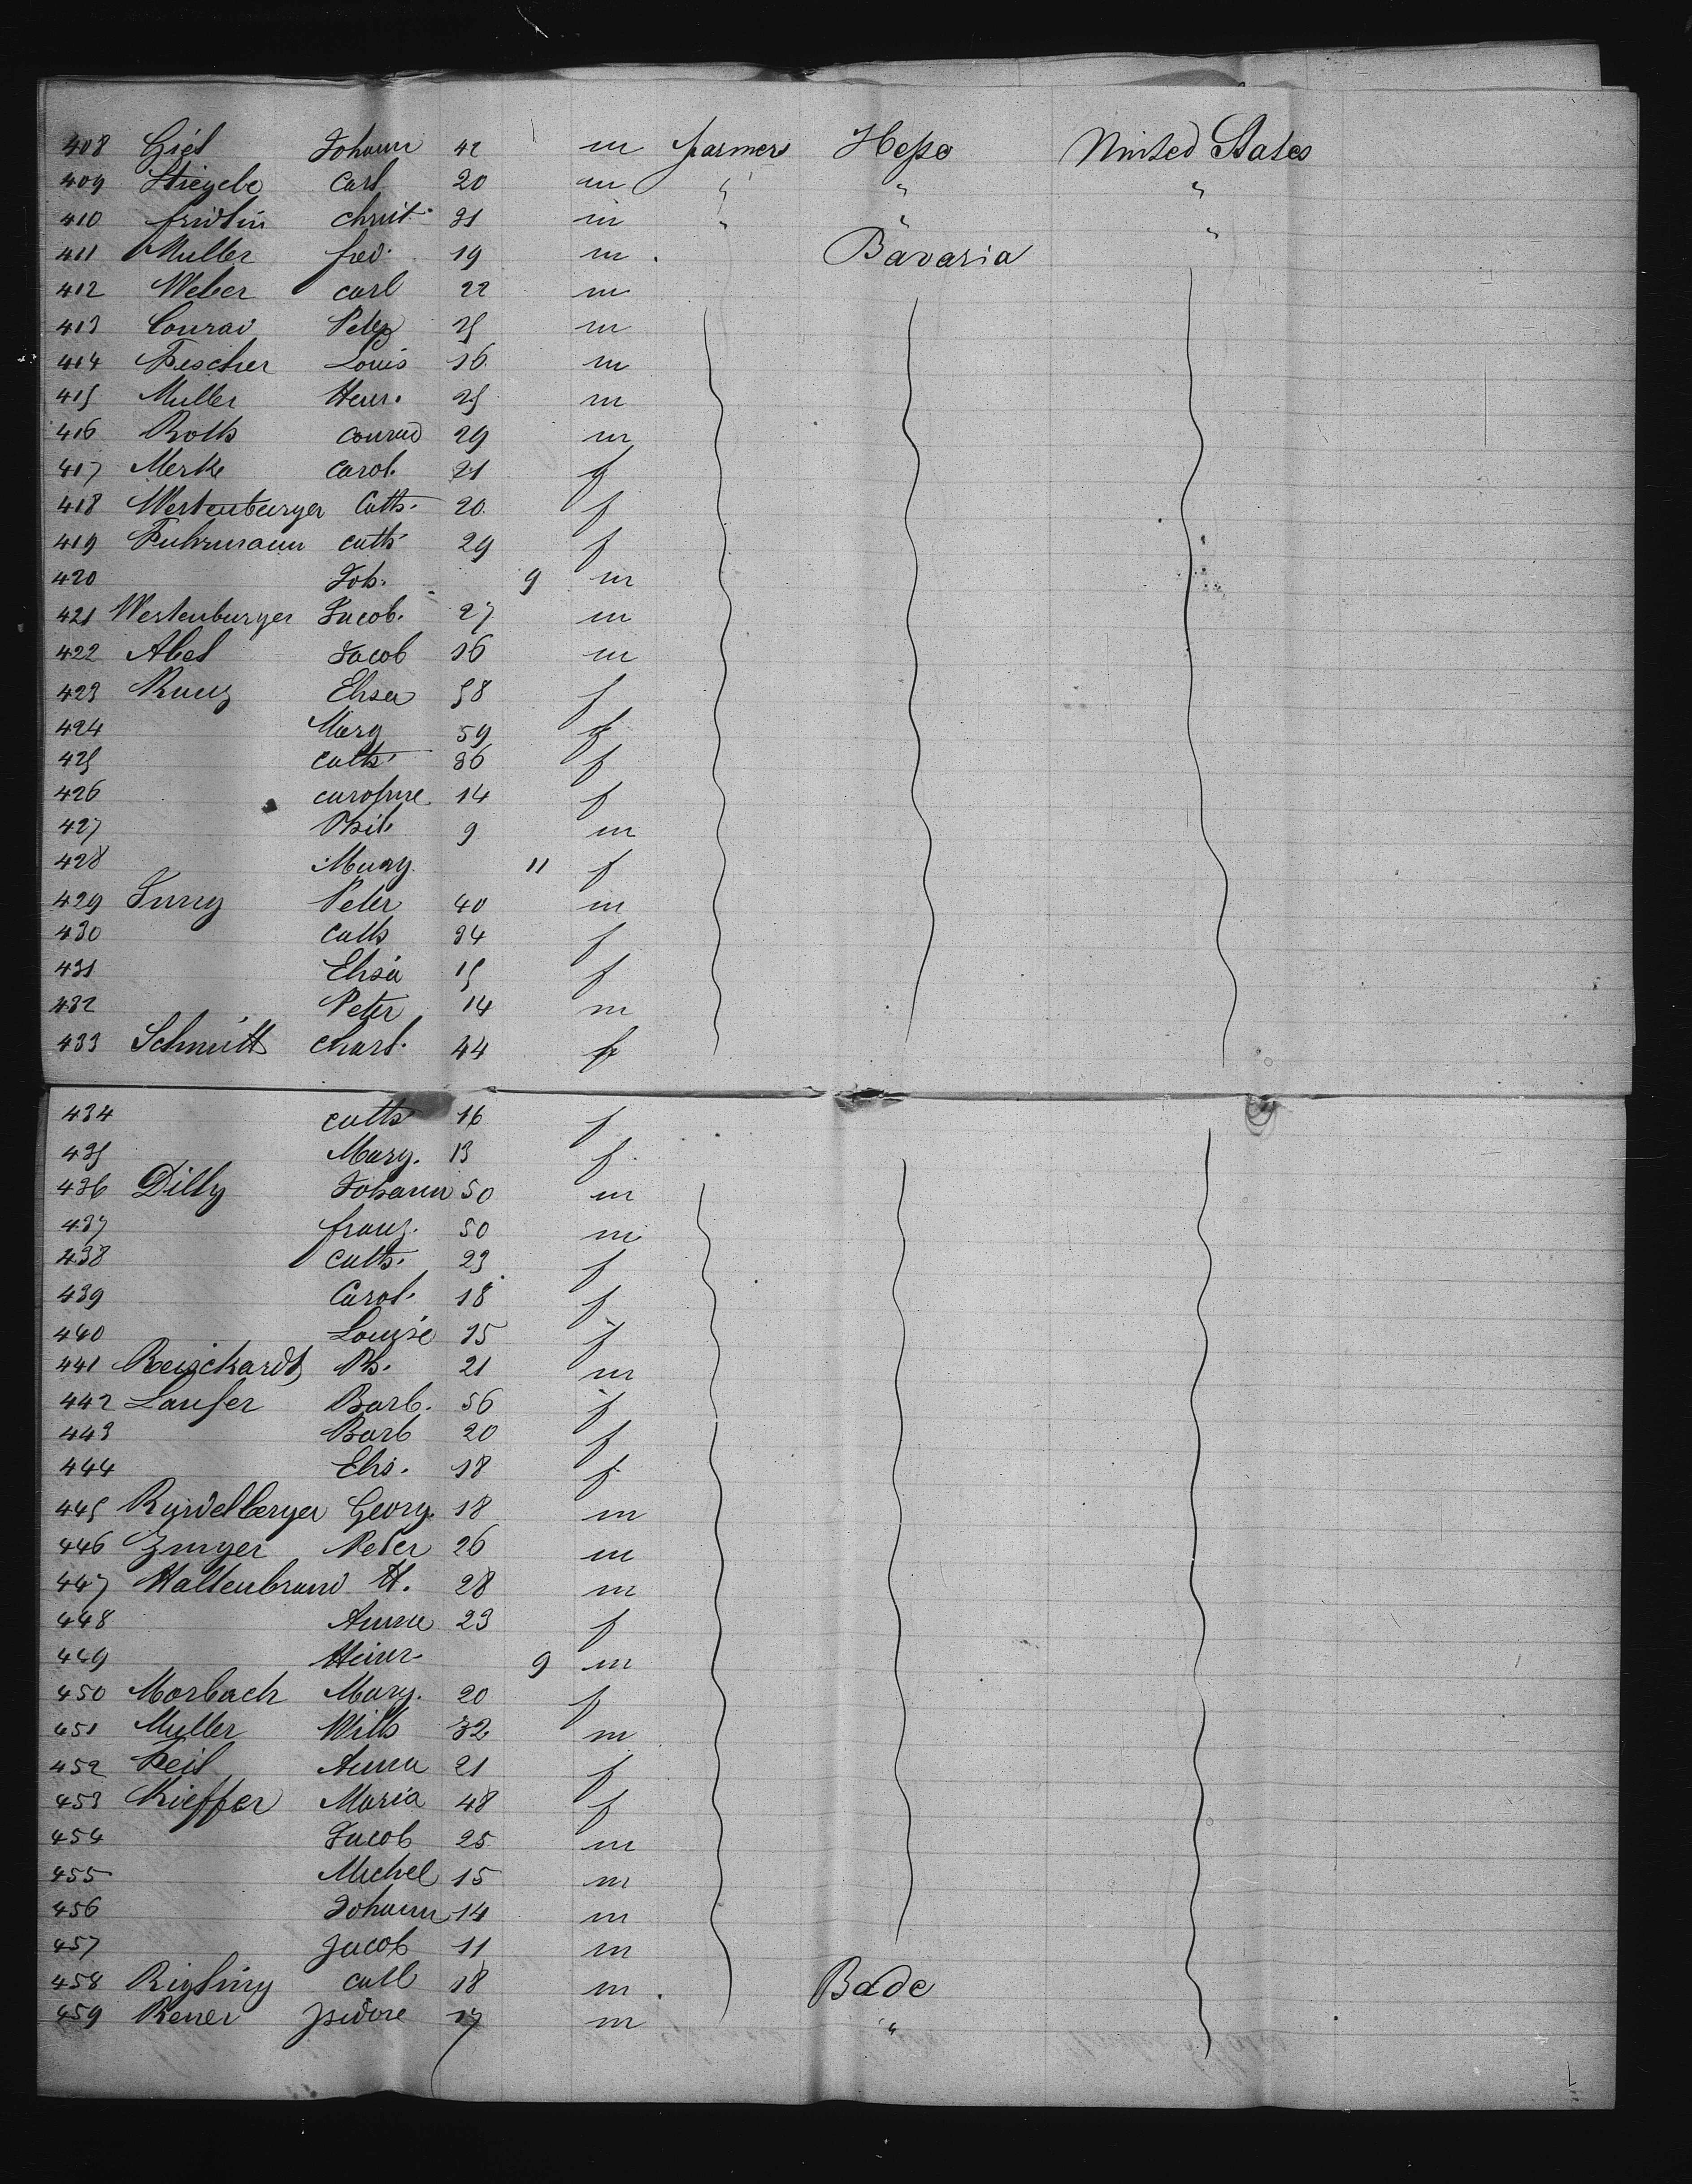 408 Giel Johann 42 m farmer Hesse United States
409 Striegele Carl 20 m " " "
410 fridlin christ. 31 m " " "
411 Muller fred. 19 m . Bavaria
412 Weber carl 22 m
413 Conrad Peter 25 m
414 Fischer Louis 16 m
415 Muller Henr. 25 m
416 Roth conrad 29 m
417 Merk carol. 21 f
418 Westenburger Cath. 20 f
419 Fuhrmann cath 29 f
420 Joh. 9 m
421 Westenburger Jacob. 27 m
422 Abel Jacob 16 m
423 Kunz Elisa 58 f
424 Marg 59 f
425 cath. 36 f
426 caroline 14 f
427 Phil. 9 m
428 Marg. 11 f
429 Jung Peter 40 m
430 Cath 34 f
431 Elisa 15 f
432 Peter 14 m
433 Schmitt Charl. 44 f
434 cath 16 f
435 Marg. 13 f
436 Dilly Johann 50 m
437 franz. 50 m
438 cath. 23 f
439 Carol. 18 f
440 Louise 15 f
441 Reischardt Ph. 21 m
442 Laufer Barb. 56 f
443 Barb 20 f
444 Elis. 18 f
445 Georg. 18 m
446 Zinger Peter 26 m
447 Kaltenbrund H. 28 m
448 Anna 23 f
449 Heinr. 9 m
450 Morbach Marg. 20 f
451 Muller Wilh 32 m
452 Keil Anna 21 f
453 Kieffer Maria 48 f
454 Jacob 25 m
455 Michel 15 m
456 Johann 14 m
457 Jacob 11 m
458 Carl 18 m . Bade
459 Rener Isidore 17 m "